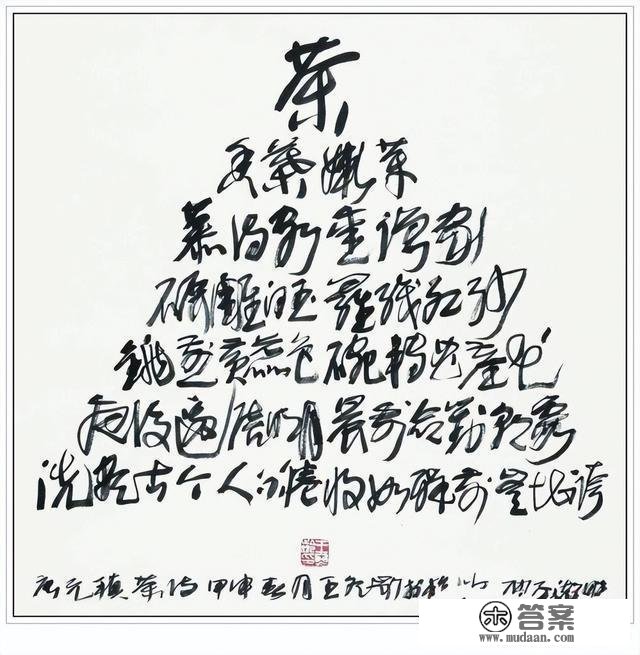 茶
香葉嫩芽
慕诗客爱僧家
碾雕白玉羅織红纱
铫煎黄蕊色碗转曲尘花
夜後邀陪明月晨前命对朝霞
洗尽古今人不倦将如醉前岂堪誇
唐元稹茶诗 甲申五月王冬龄
答案
www.mudaan.com